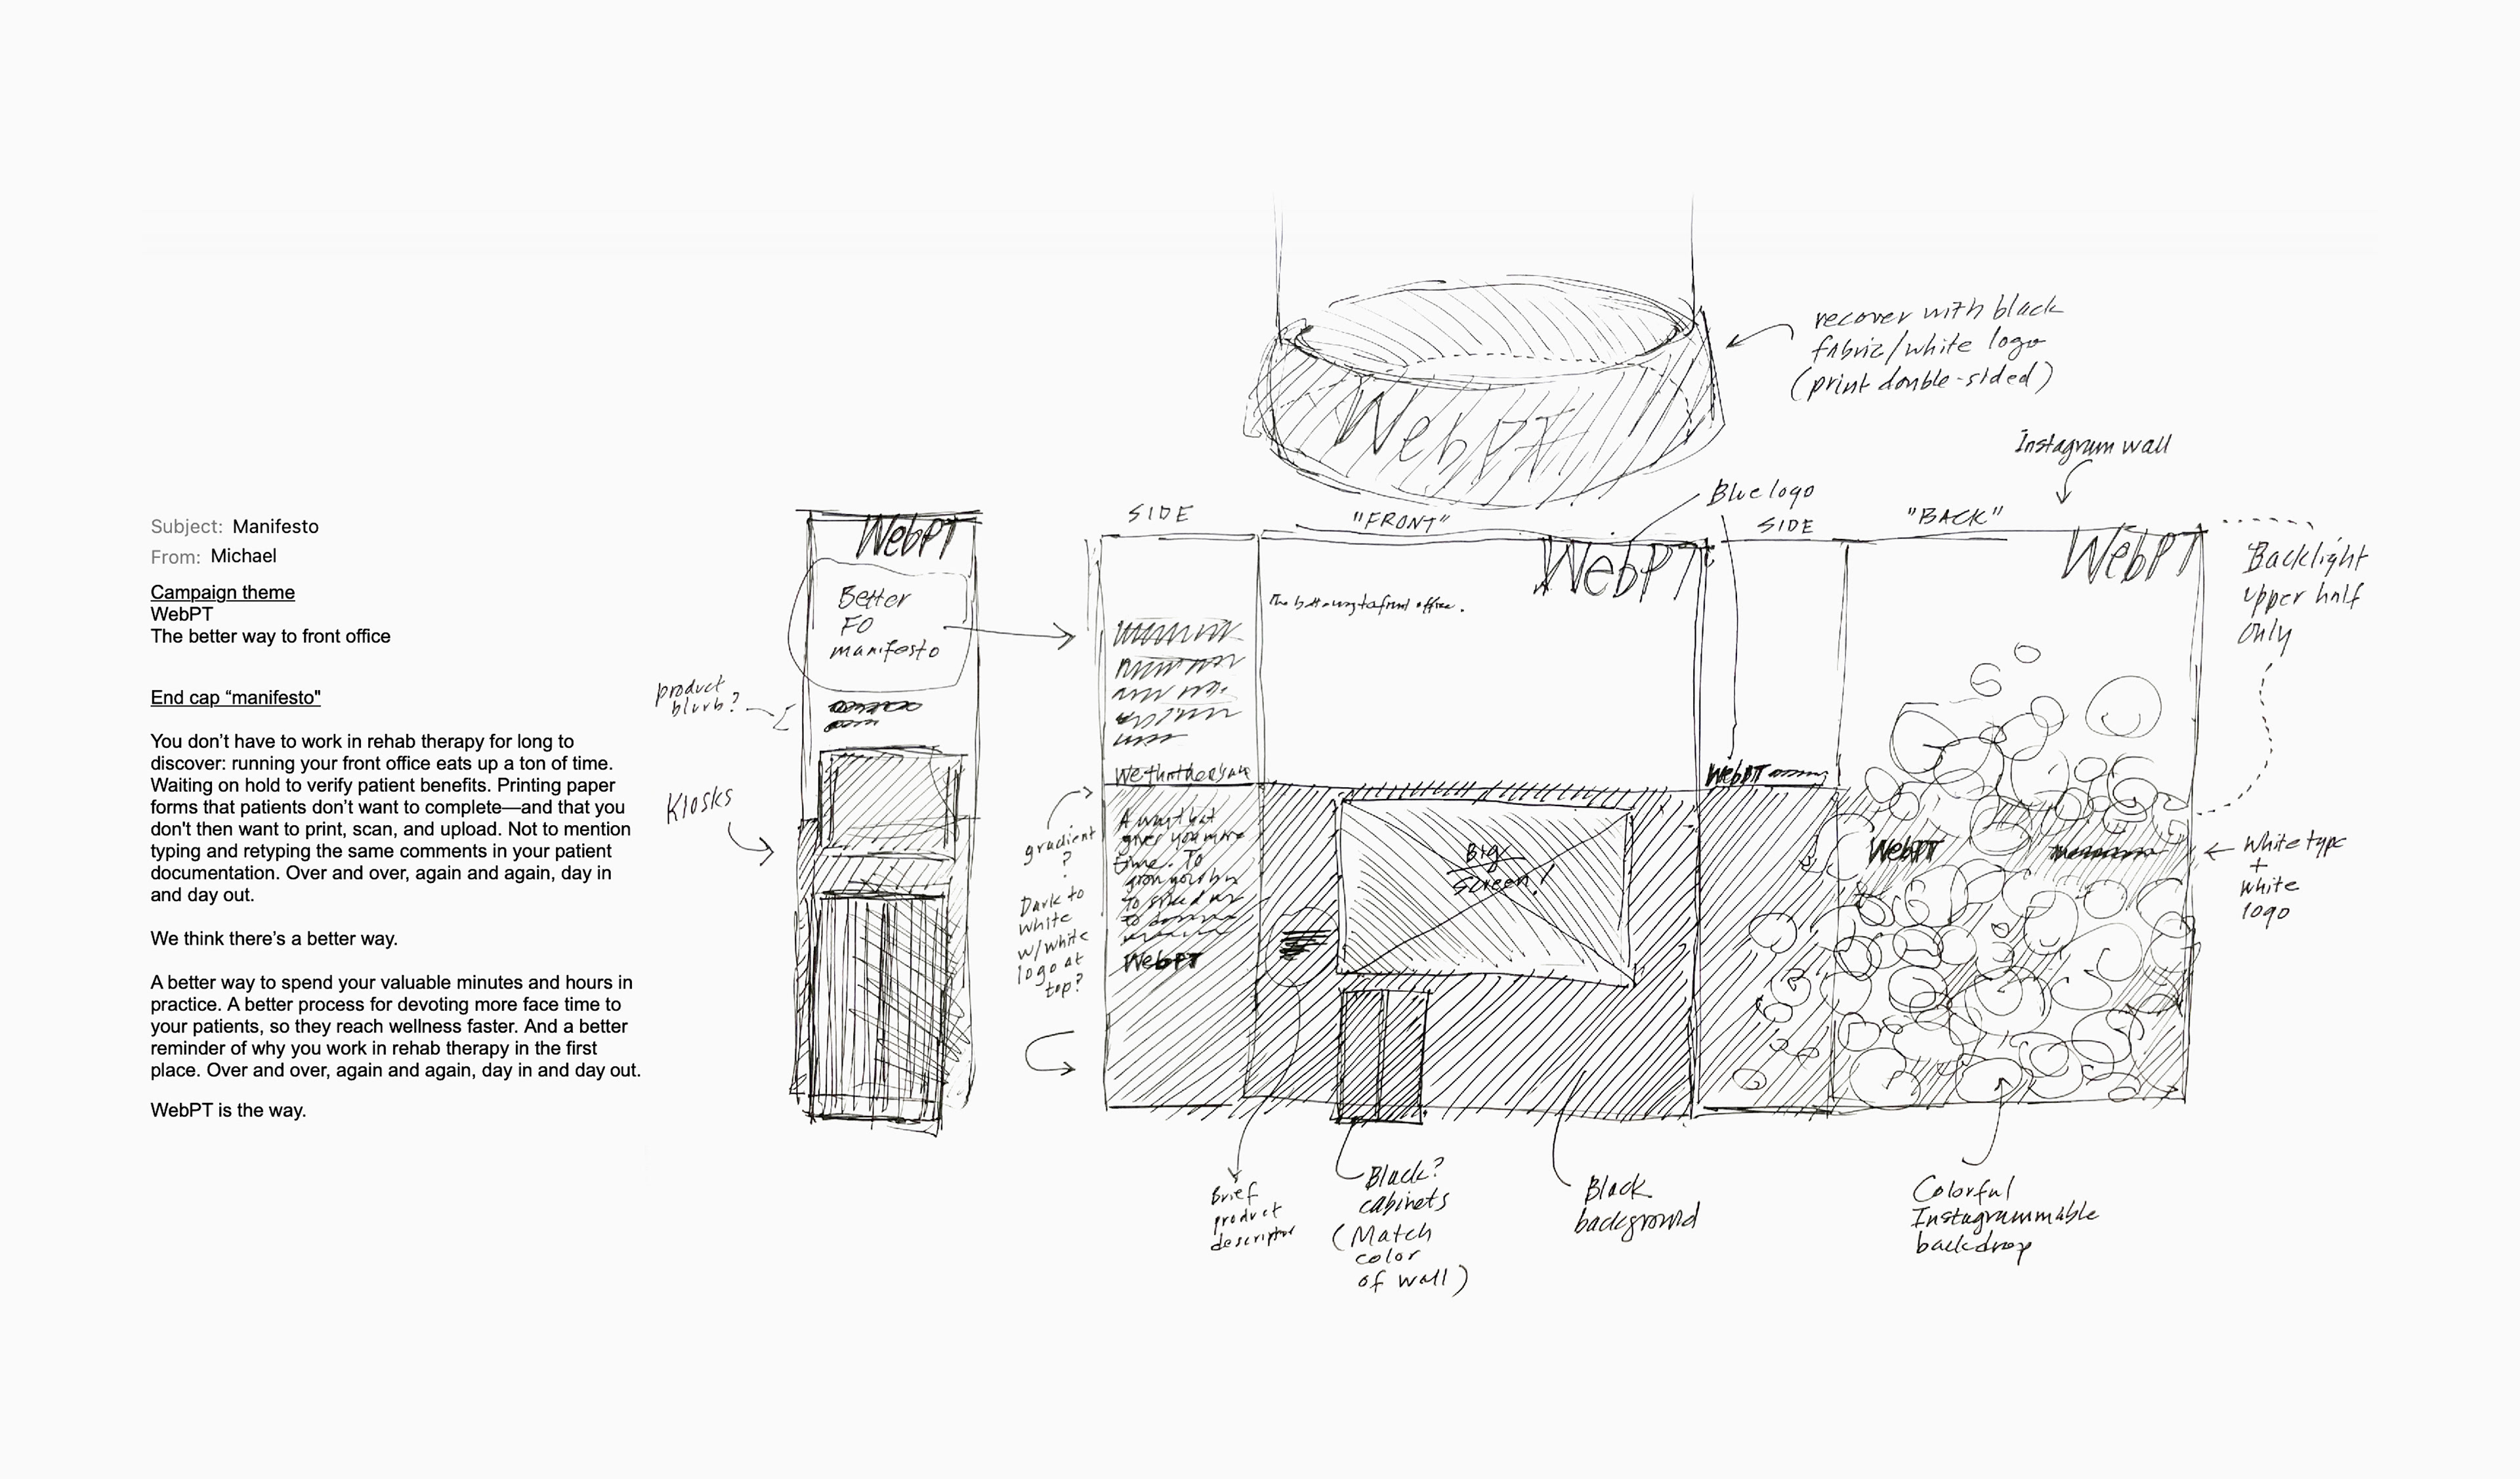 Subject: Manifesto
From: Michael
Campaign theme
WebPT
The better way to front office
End cap “manifesto"
You don’t have to work in rehab therapy for long to
discover: running your front office eats up a ton of time.
Waiting on hold to verify patient benefits. Printing paper
forms that patients don’t want to complete—and that you
don't then want to print, scan, and upload. Not to mention
typing and retyping the same comments in your patient
documentation. Over and over, again and again, day in
and day out.
We think there’s a better way.
A better way to spend your valuable minutes and hours in
practice. A better process for devoting more face time to
your patients, so they reach wellness faster. And a better
reminder of why you work in rehab therapy in the first
place. Over and over, again and again, day in and day out.
WebPT is the way.
WebPT
Better
FO
manifesto
product
blurb?
Kiosks
WebPT
recover with black
fabric/white logo
(print double-sided)
Instagram wall
Blue logo
SIDE
"FRONT"
SIDE
"BACK"
WebPT
The better way to front office.
WebPT
Backlight
upper half
only
gradient
?
Dark to
white
w/white
logo at
top?
A way that
gives you more
time. To
grow your
WebPT
Big
Screen!
WebPT
WebPT
White type
+
white
logo
Brief
product
descriptor
Black?
cabinets
(Match
color
of wall)
Black
background
Colorful
Instagrammable
backdrop